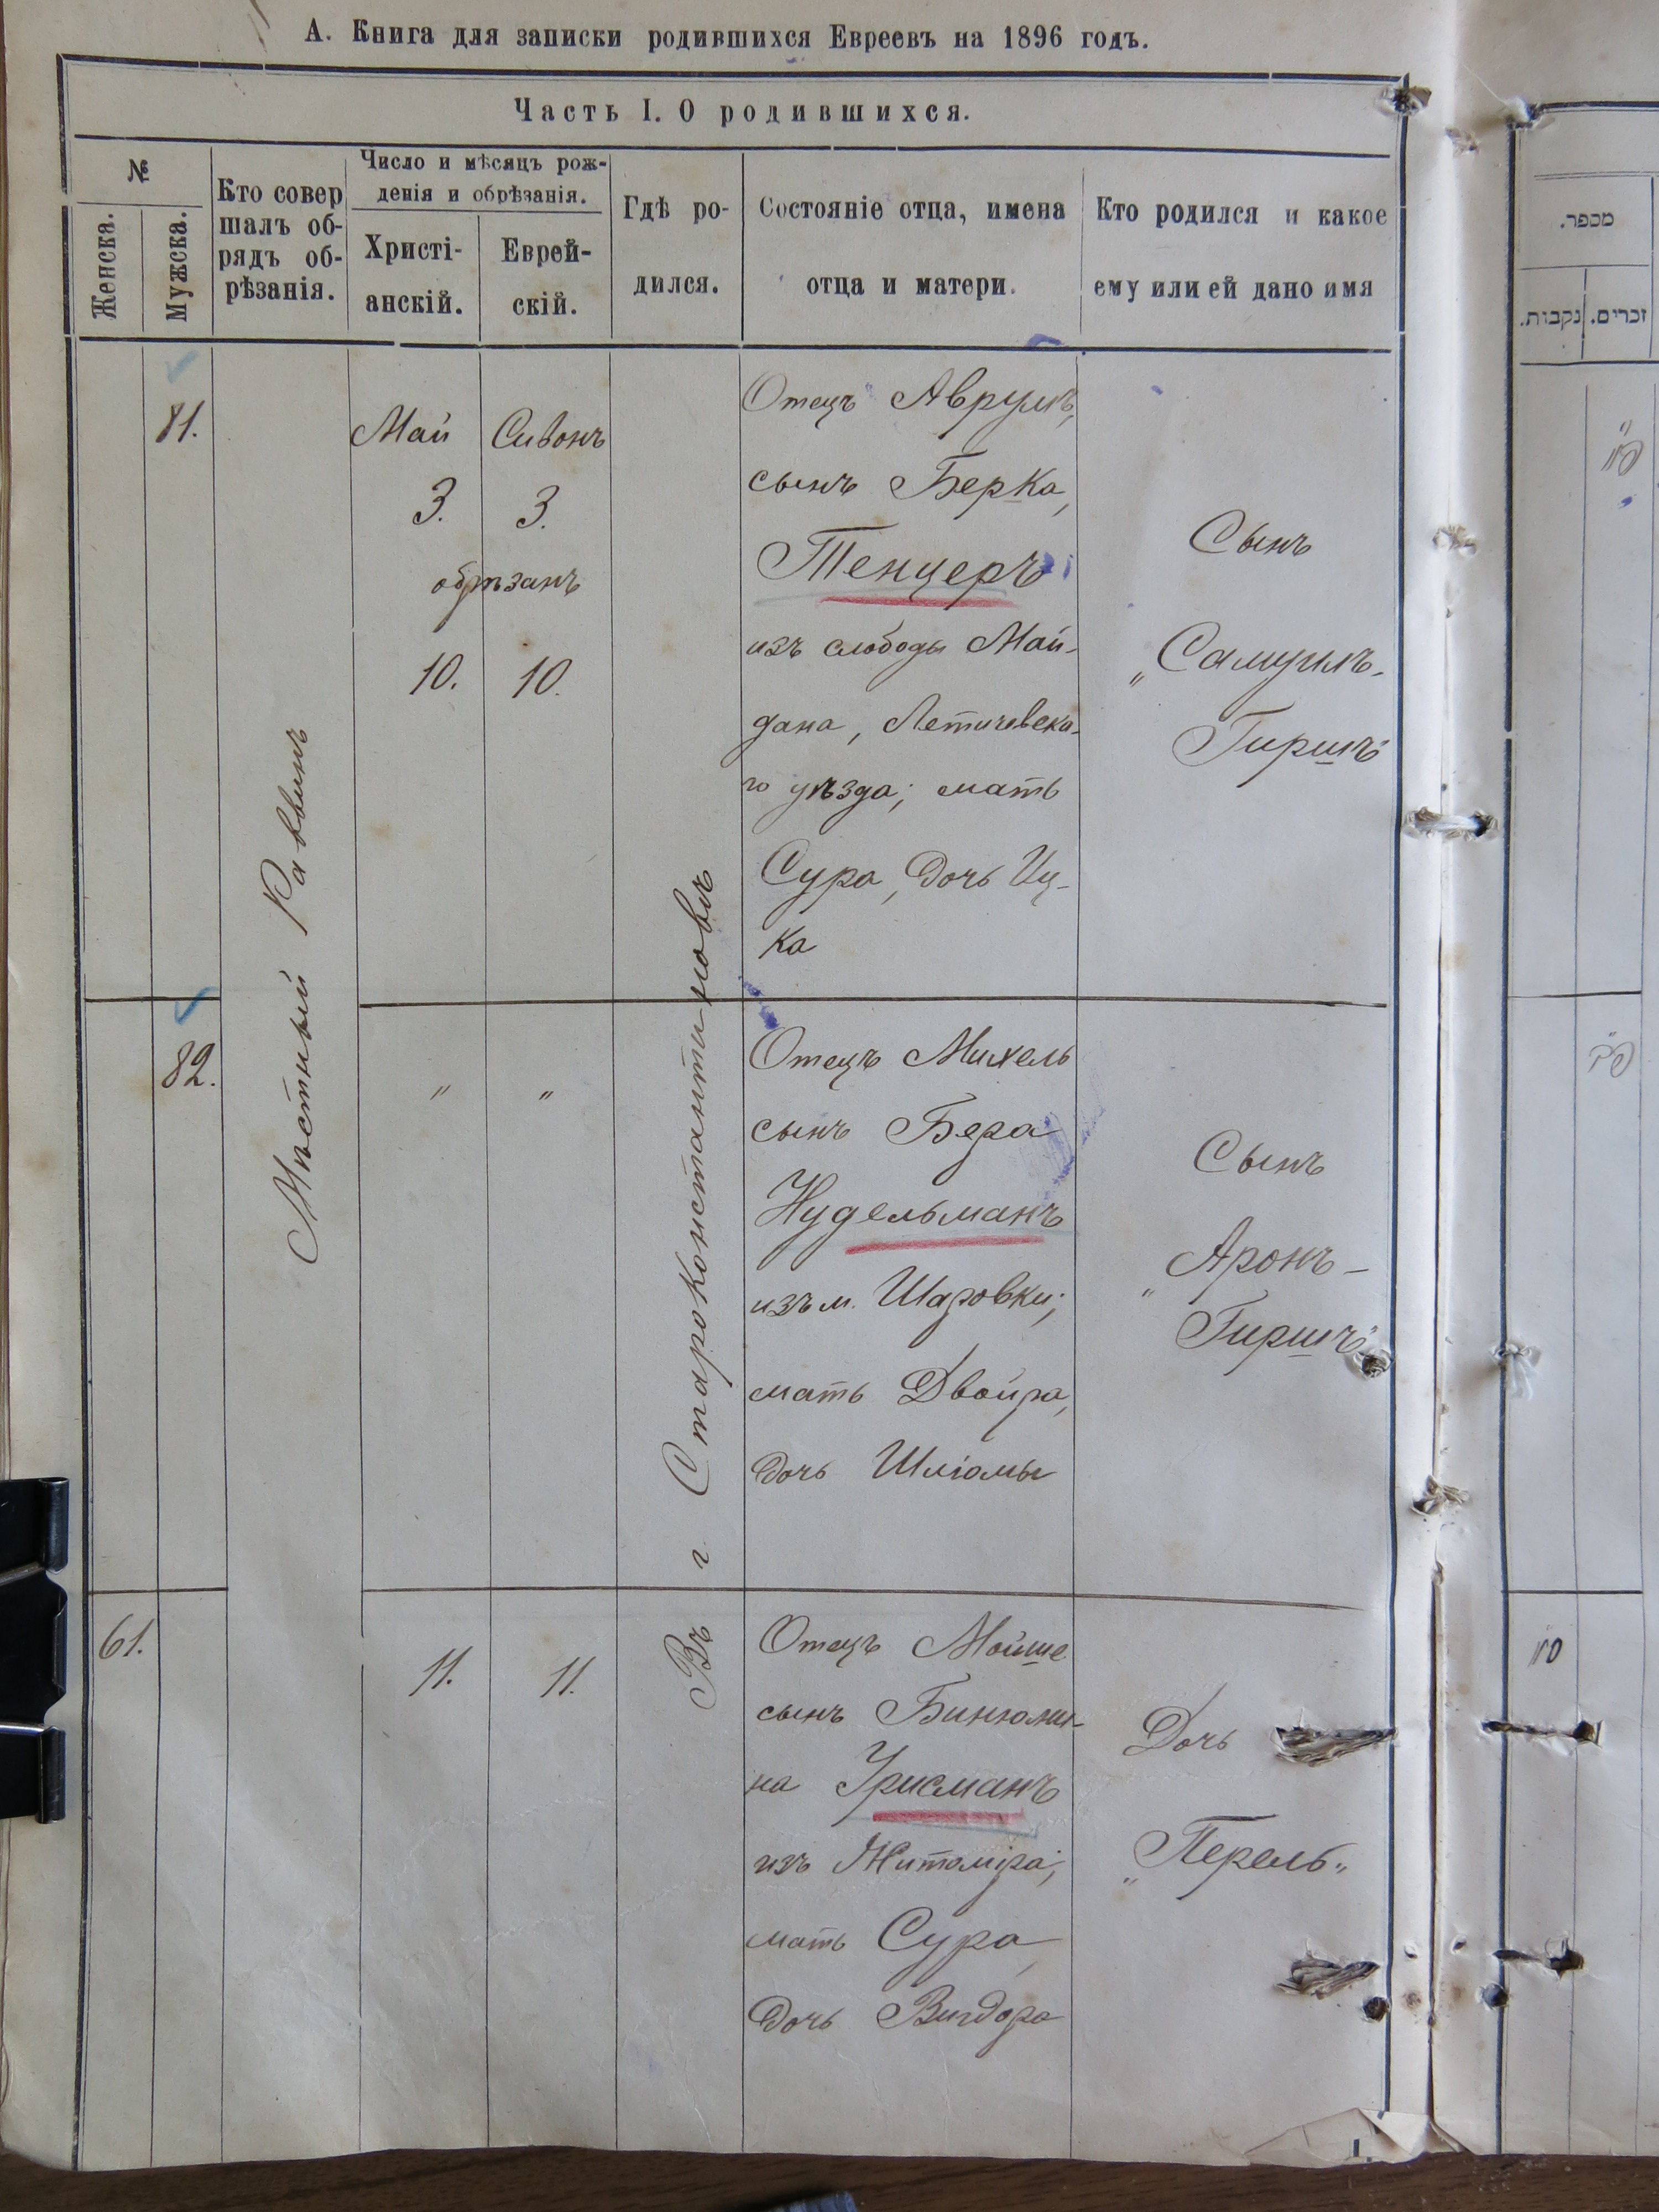 А. Книга для записки родившихся Евреевъ на 1896 годъ.
Часть I. О родившихся.
№
Женска.
Мужска.
Кто совер
шалъ об-
рядъ об-
рѣзанія.
Число и мѣсяцъ рож-
денія и обрѣзанія.
Христі-
анскій.
Еврей-
скій.
Гдѣ ро-
дился.
Состояніе отца, имена
отца и матери.
Кто родился и какое
ему или ей дано имя
Мѣстный Раввинъ
Въ г. Староконстантиновѣ
81.
Май
Сивонъ
3.
3.
обрѣзанъ
10.
10.
Отецъ Аврумъ,
сынъ Берка,
Тенцеръ
изъ слободы Май-
дана, Летичевска-
го уѣзда; мать
Сура, дочь Иц-
ка
Сынъ
„Самуилъ-
Гиршъ"
82.
"
"
Отецъ Михель
сынъ Бера
Нудельманъ
изъ м. Шаровки;
мать Двойра,
дочь Шліомы
Сынъ
„Аронъ-
Гиршъ"
61.
11.
11.
Отецъ Мойше
сынъ Бинюми-
на Урисманъ
изъ Житоміра;
мать Сура,
дочь Вигдора
Дочь
„Перель"
מכפר.
זכרים.
נקבות.
פ״א
פ״ב